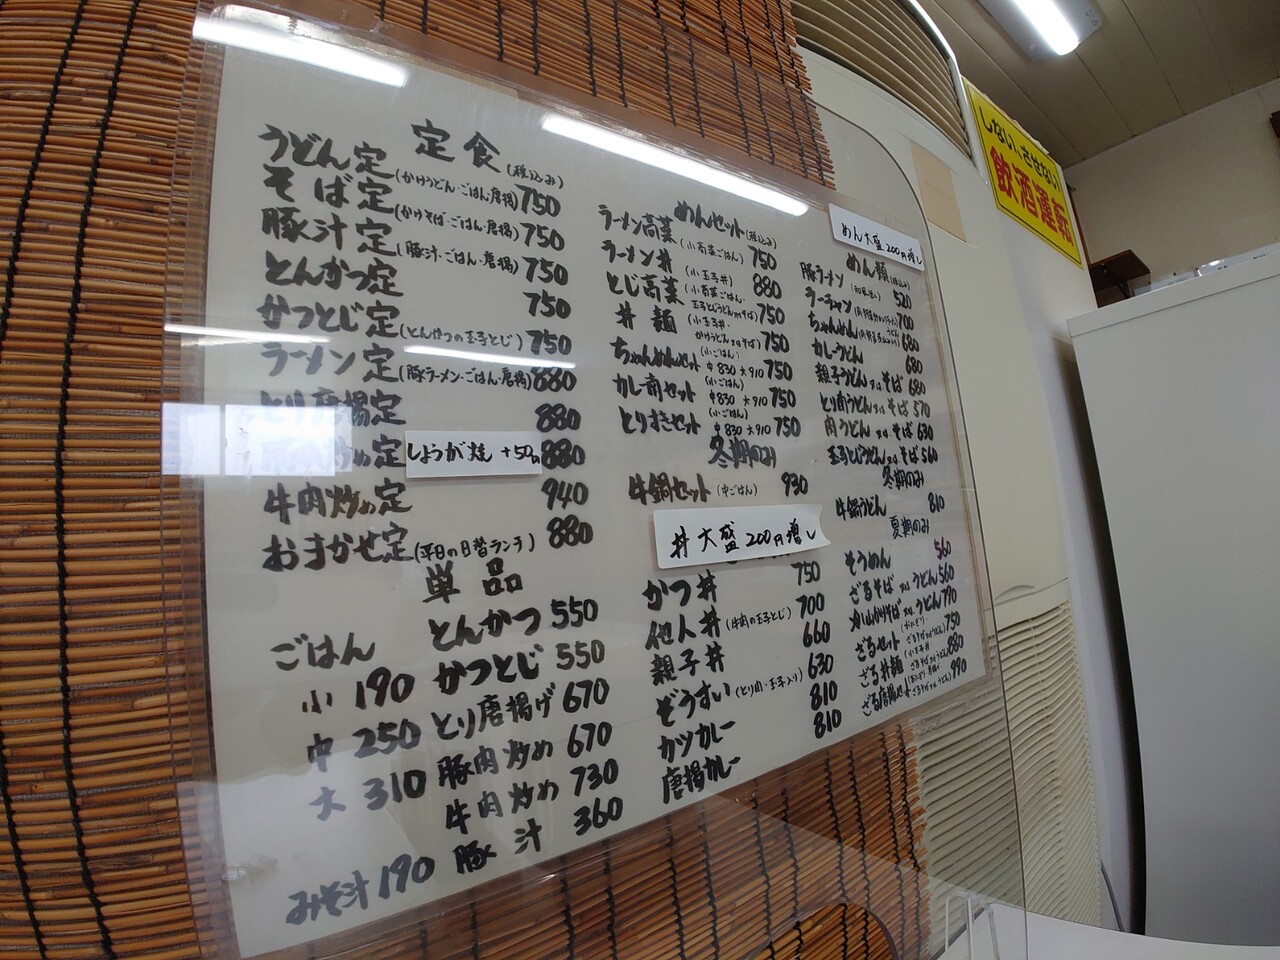 定食(税込み)
うどん定(かけうどん・ごはん・唐揚)750
そば定(かけそば・ごはん・唐揚)750
豚汁定(豚汁・ごはん・唐揚)750
とんかつ定 750
かつとじ定(とんかつの玉子とじ)750
ラーメン定(豚ラーメン・ごはん・唐揚)880
とり唐揚定 880
炒め定 880
しょうが焼 +50円
牛肉炒め定 940
おまかせ定(平日の日替ランチ)880
単品
ごはん
小 190
中 250
大 310
みそ汁 190
とんかつ 550
かつとじ 550
とり唐揚げ 670
豚肉炒め 670
牛肉炒め 730
豚汁 360
めんセット(税込み)
ラーメン高菜(小高菜ごはん)750
ラーメン丼(小玉子丼)880
とじ高菜(小高菜ごはん・玉子とじうどん又はそば)750
丼麺(小玉子丼・かけうどん又はそば)750
ちゃんめんセット(小ごはん)中830 大910 750
カレー南セット(小ごはん)中830 大910 750
とりすきセット(小ごはん)中830 大910 750
冬期のみ
牛鍋セット(中ごはん)930
丼大盛200円増し
かつ丼 750
他人丼(牛肉の玉子とじ)700
親子丼 660
ぞうすい(とり肉・玉子入り)630
カツカレー 810
唐揚カレー 810
めん大盛200円増し
めん類(税込み)
豚ラーメン 520
ラーチャン 700
ちゃんめん 680
カレーうどん 680
親子うどん又はそば 680
とり南うどん又はそば 570
肉うどん又はそば 630
玉子とじうどん又はそば 560
冬期のみ
牛鍋うどん 810
夏期のみ
そうめん 560
ざるそば又はうどん 560
山かけそば又はうどん 790
ざるセット 750
ざる丼麺 880
ざる唐揚セット 990
しない、させない
飲酒運転